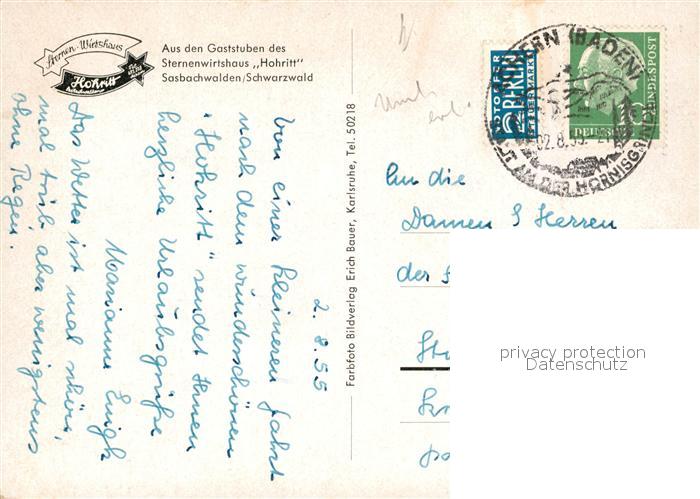 Sternen-Wirtshaus
Hohritt
Aus den Gaststuben des
Sternenwirtshaus „Hohritt"
Sasbachwalden/Schwarzwald
2.8.55
Von einer kleineren Fahrt
nach dem wunderschönen
„Hohritt" sendet Ihnen
herzliche Urlaubsgrüße
Marianne
Das Wetter ist mal schön,
mal trüb, aber wenigstens
ohne Regen.
Farbfoto Bildverlag Erich Bauer, Karlsruhe, Tel. 50218
NOTOPFER
2 BERLIN
STEUERMARKE
DEUTSCHE BUNDESPOST
10
ACHERN (BADEN)
AN DER HORNISGRINDE
02.8.55
An die
Damen & Herren
der
privacy protection
Datenschutz